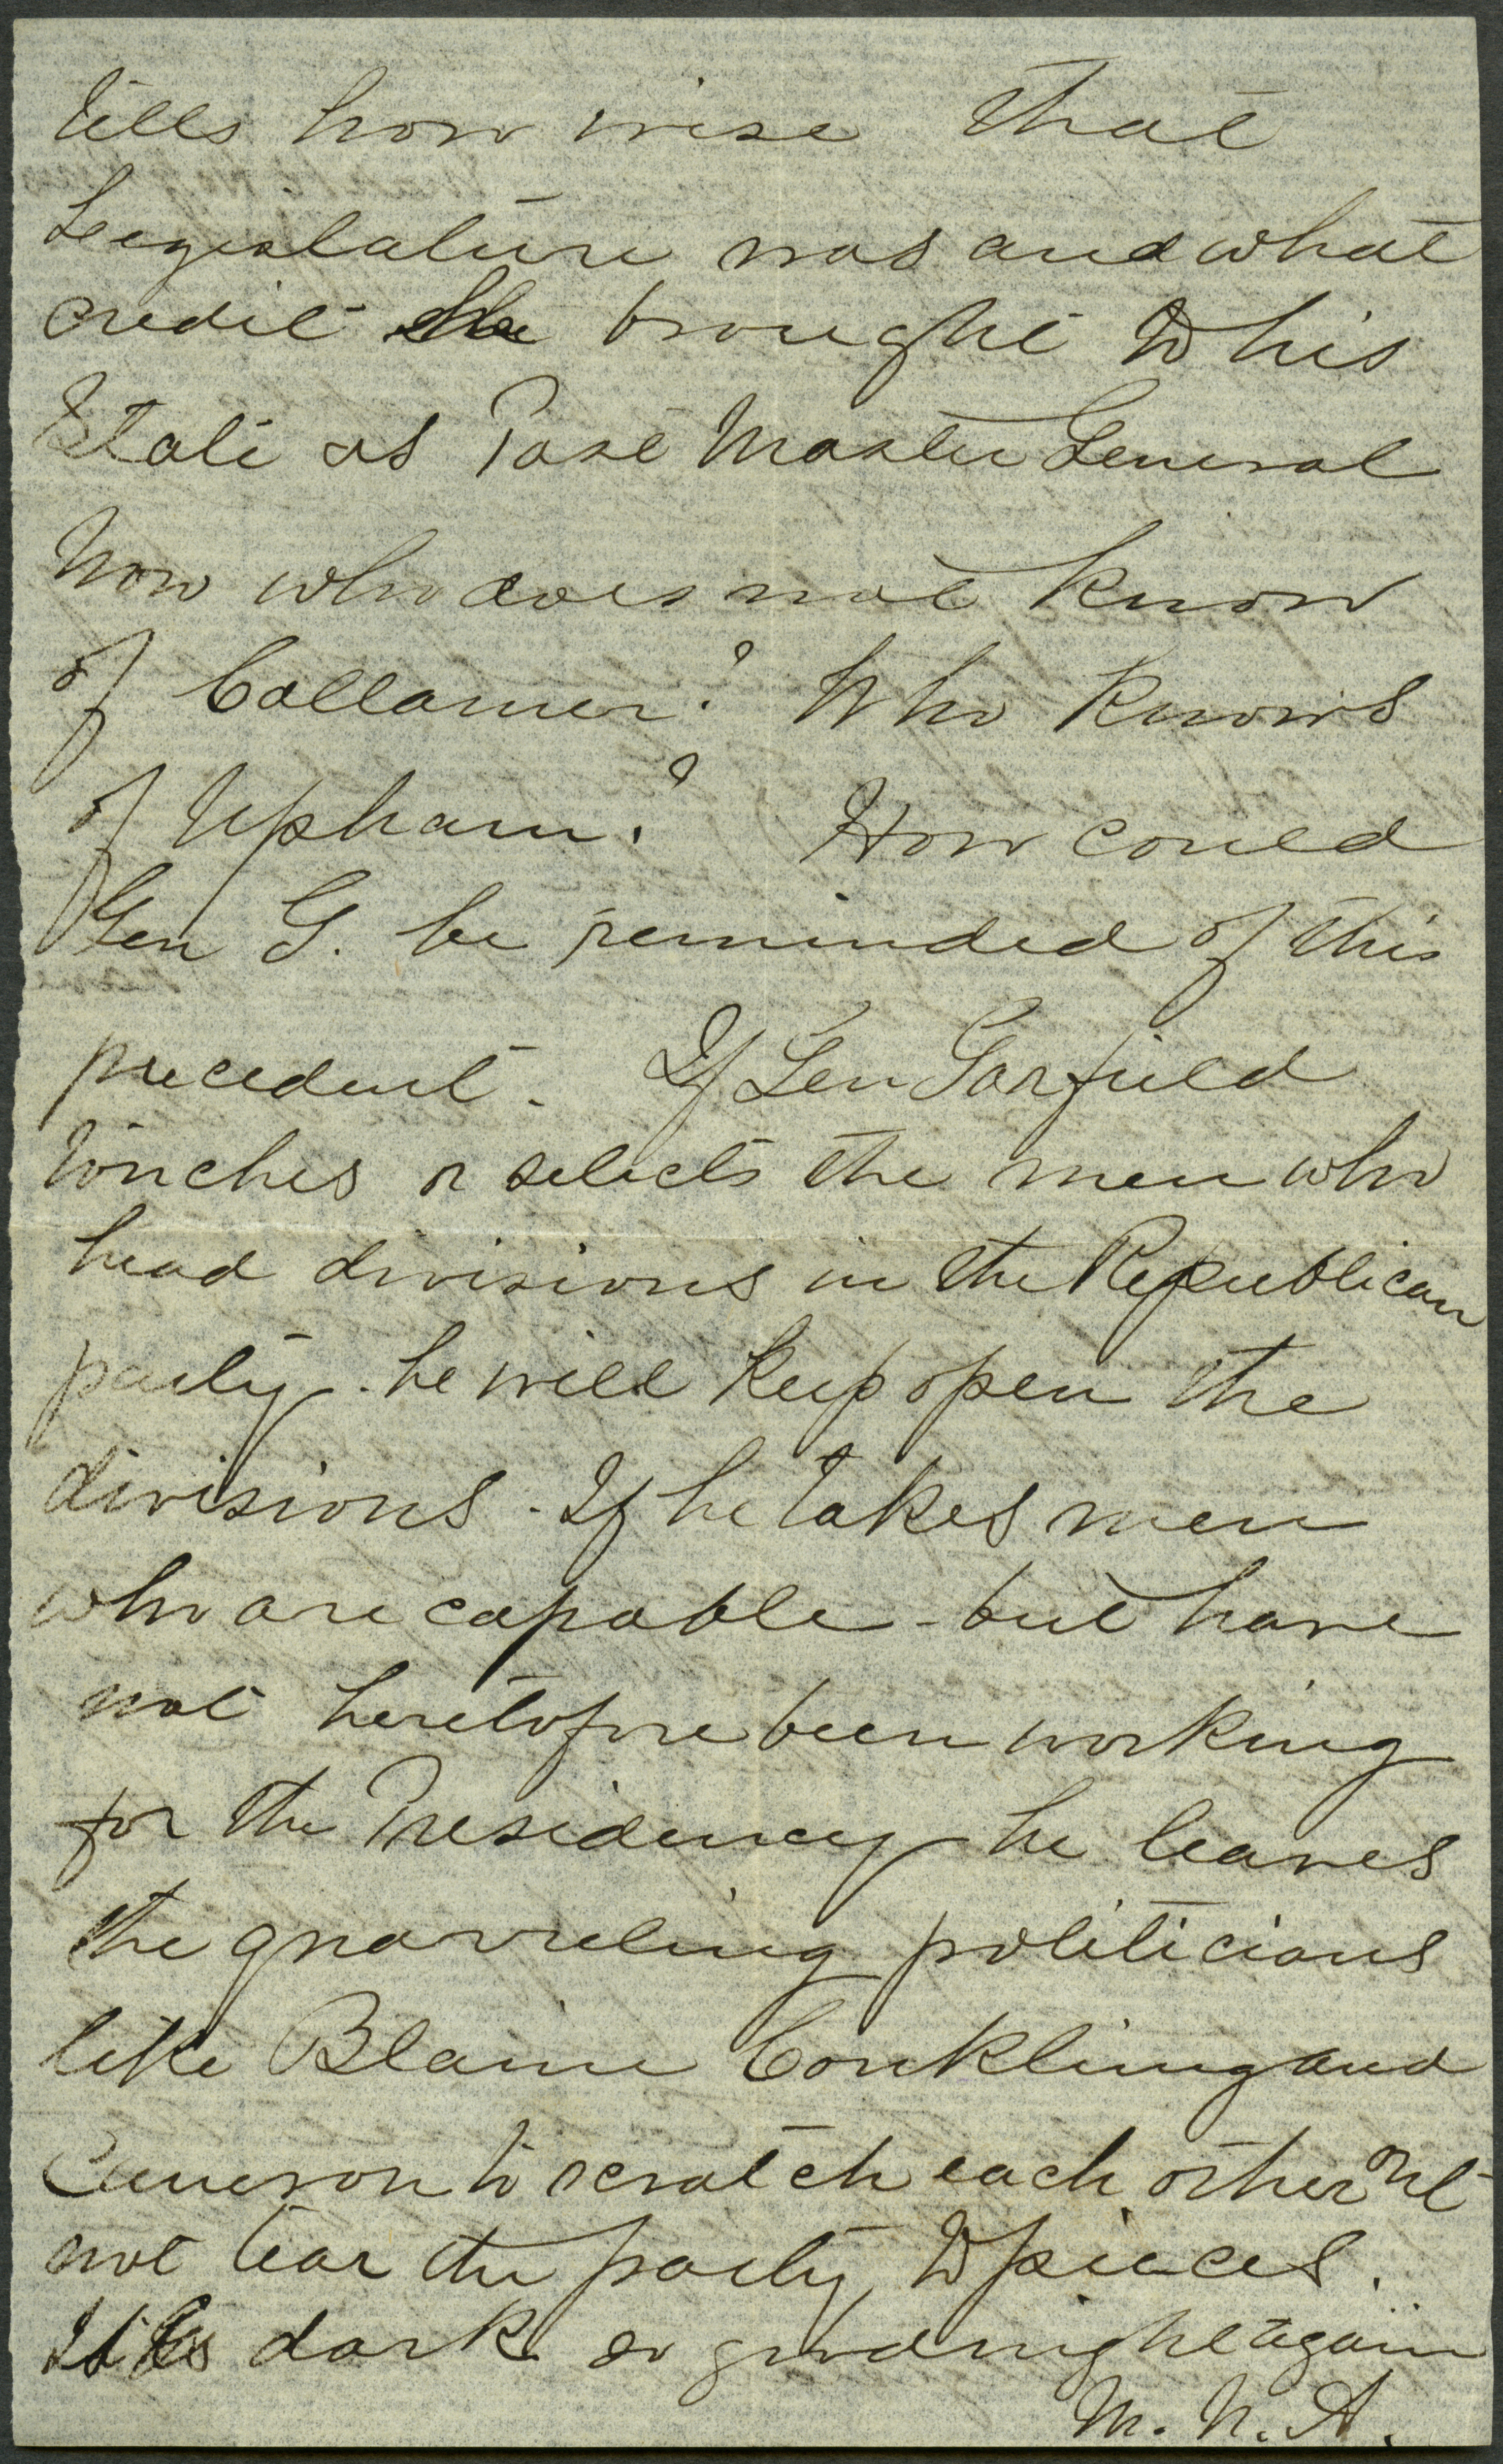 tells how wise that
Legislature was and what
credit he brought to his
State as Post Master General
Now who does not know
of Collamer? Who knows
of Upham? How could
Gen G. be reminded of this
precedent. If Gen Garfield
touches or selects the men who
head divisions in the Republican
party - he will keep open the
divisions - If he takes men
who are capable - but have
not heretofore been working
for the Presidency he leaves
the quarreling politicians
like Blaine Conkling and
Cameron to scratch each other
not tear the party to pieces.
It is dark so good night again
M. N. A.